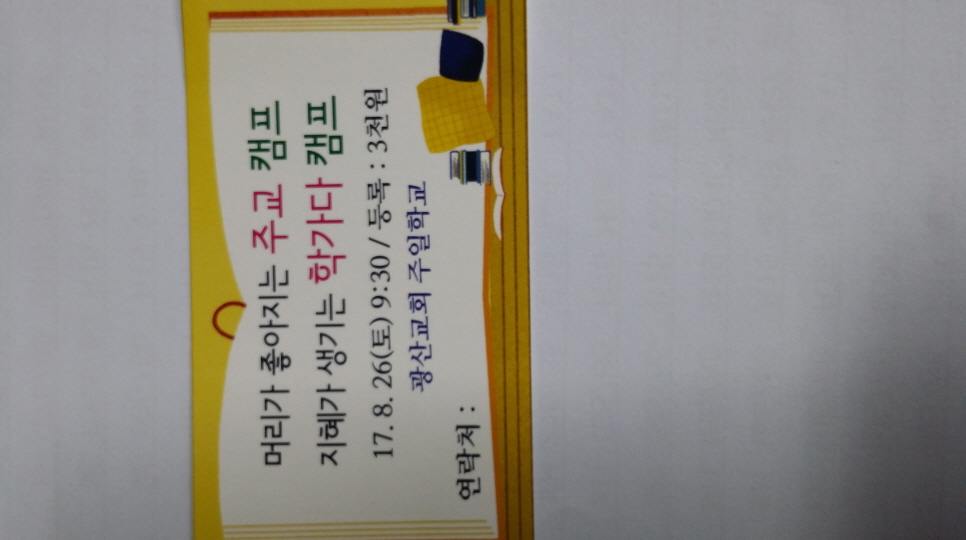 머리가 좋아지는 주교 캠프
지혜가 생기는 학가다 캠프
17. 8. 26(토) 9:30 / 등록 : 3천원
광산교회 주일학교
연락처 :